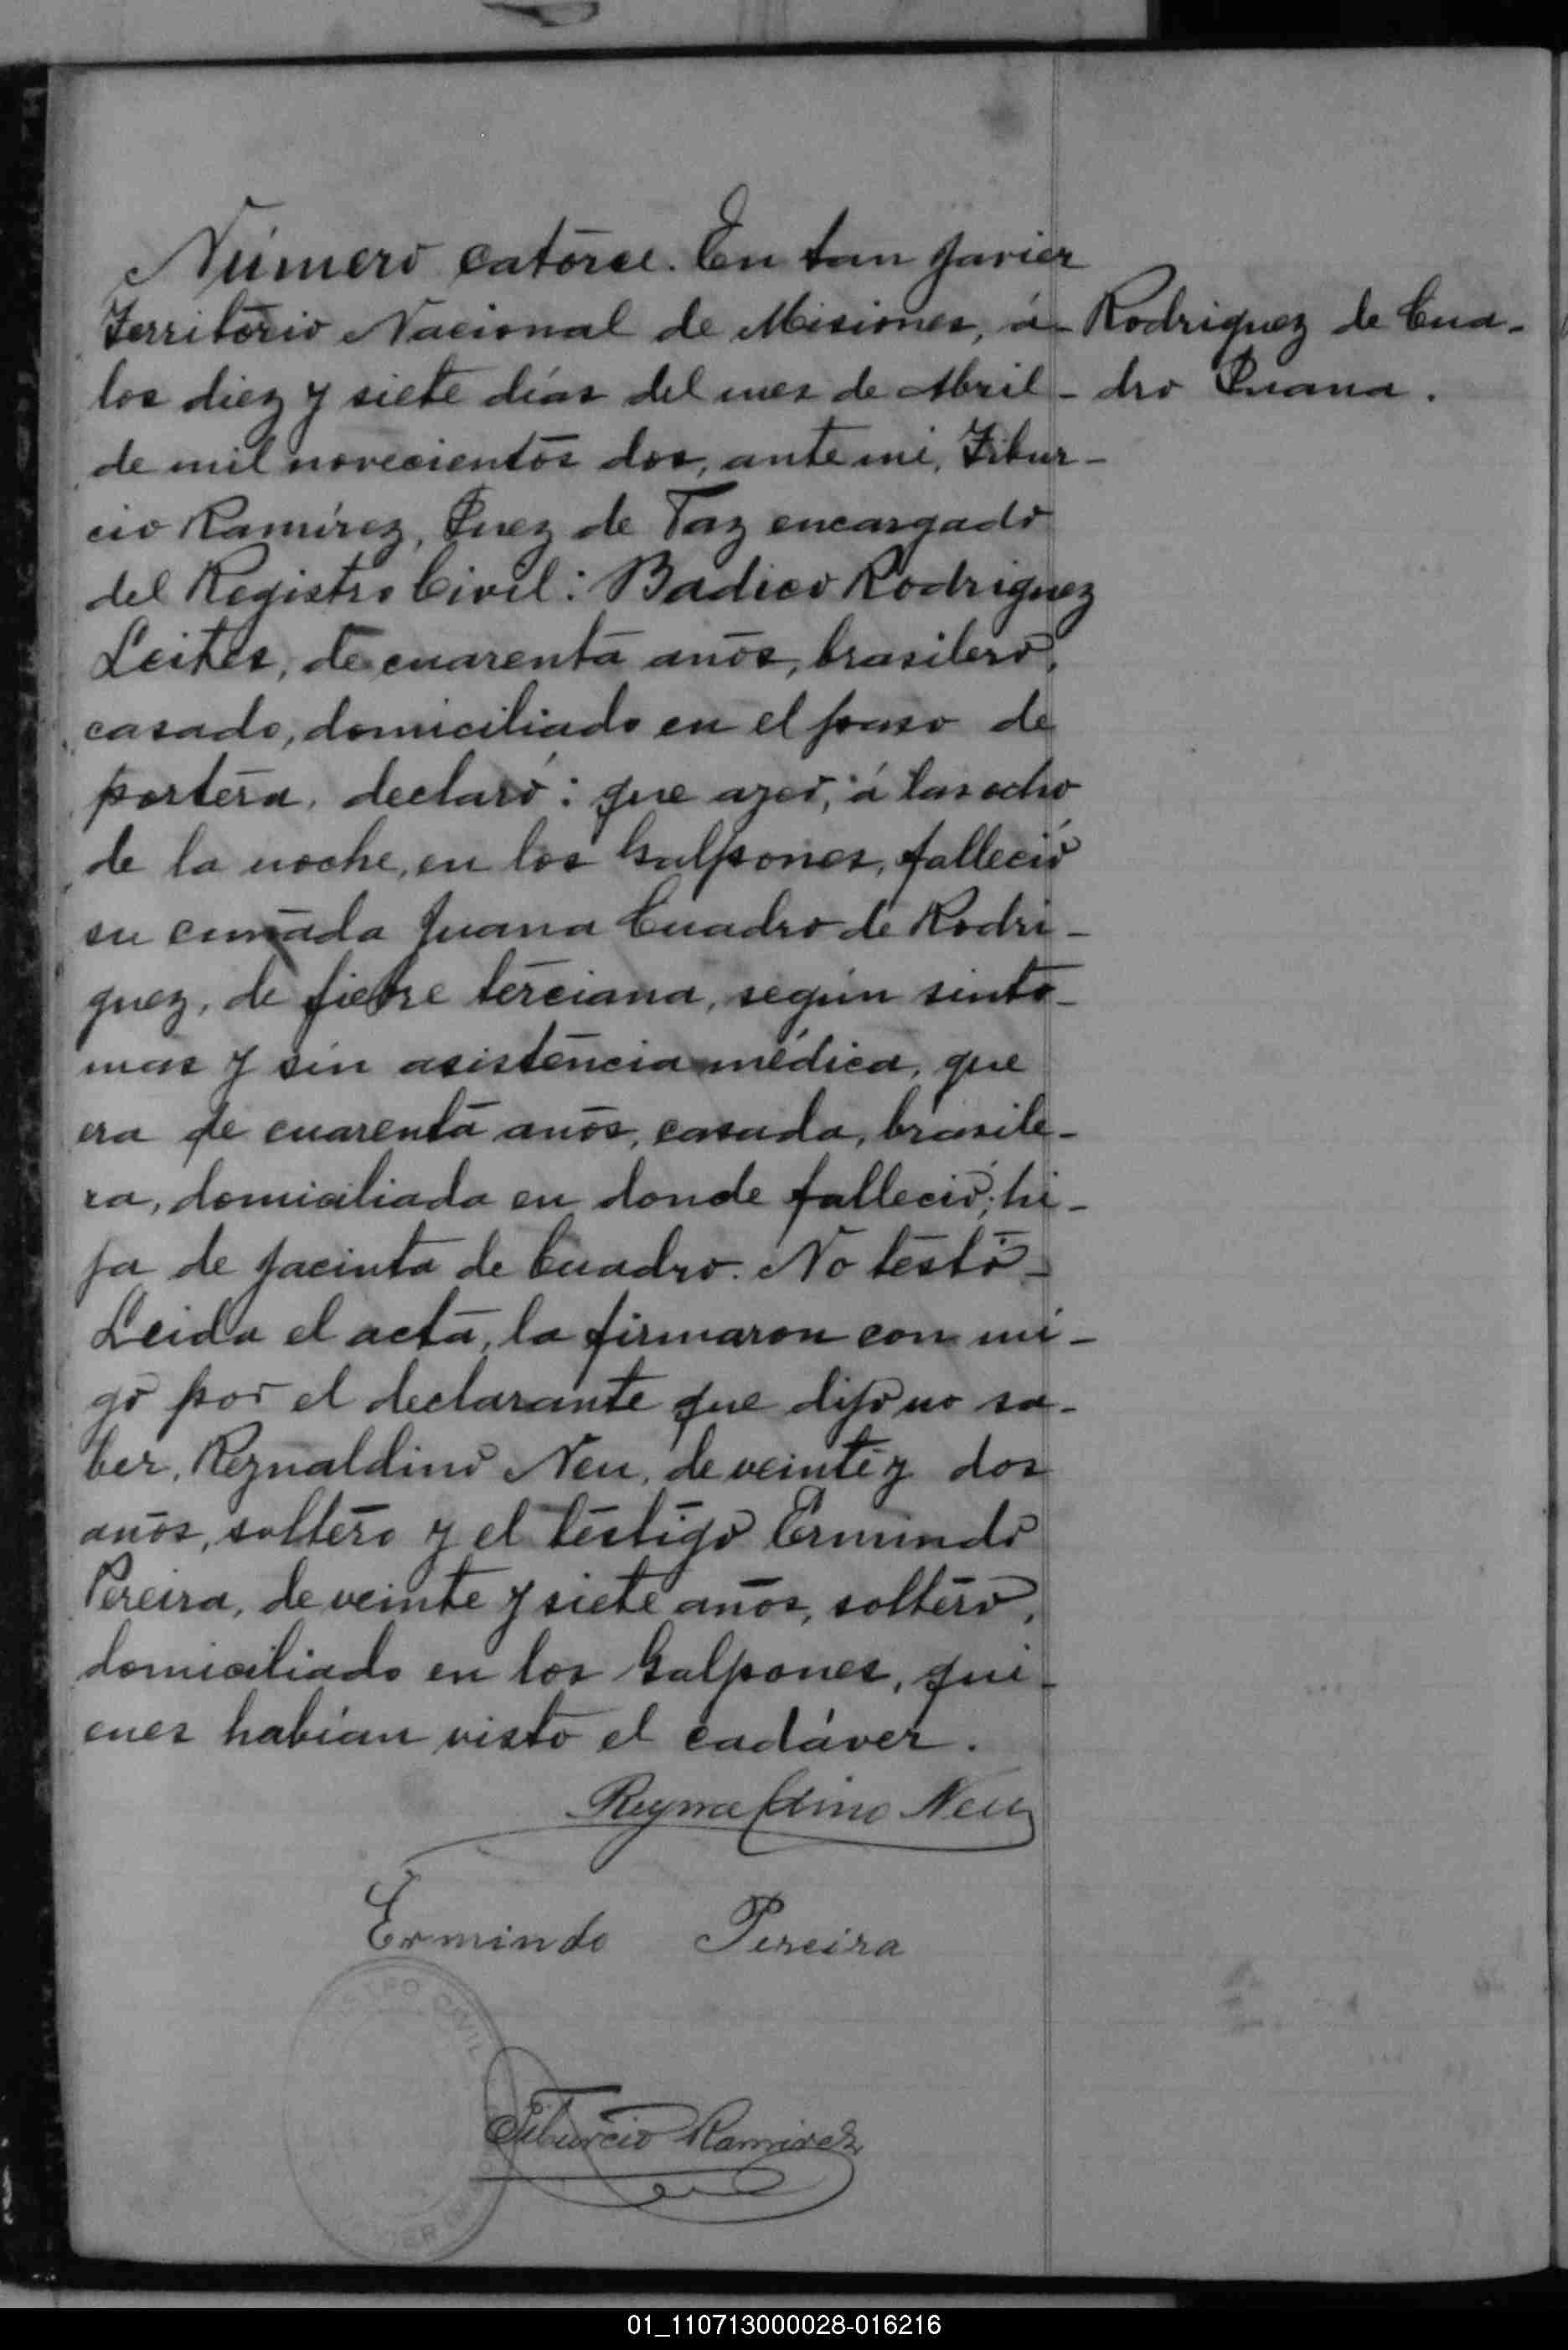 Número catorce. En San Javier
Territorio Nacional de Misiones, á
los diez y siete días del mes de Abril -
de mil novecientos dos, ante mi, Tibur-
cio Ramírez, Juez de Paz encargado
del Registro Civil: Badico Rodriguez
Leites, de cuarenta años, brasilero,
casado, domiciliado en el paso de
portera, declaró: que ayer, á las ocho
de la noche, en los Galpones, falleció
su cuñada Juana Cuadro de Rodri-
guez, de fiebre terciana, según sinto-
mas y sin asistencia médica, que
era de cuarenta años, casada, brasile-
ra, domiciliada en donde falleció; hi-
ja de Jacinta de Cuadro. No testó -
Leida el acta, la firmaron con mi-
go por el declarante que dijo no sa-
ber, Reynaldino Neu, de veinte y dos
años, soltero y el testigo Ermindo
Pereira, de veinte y siete años, soltero,
domiciliado en los Galpones, qui-
enes habían visto el cadáver.
Rodriguez de Cua-
dro Juana.
Reynaldino Neu
Ermindo Pereira
CIVIL
Tiburcio Ramirez
01_110713000028-016216